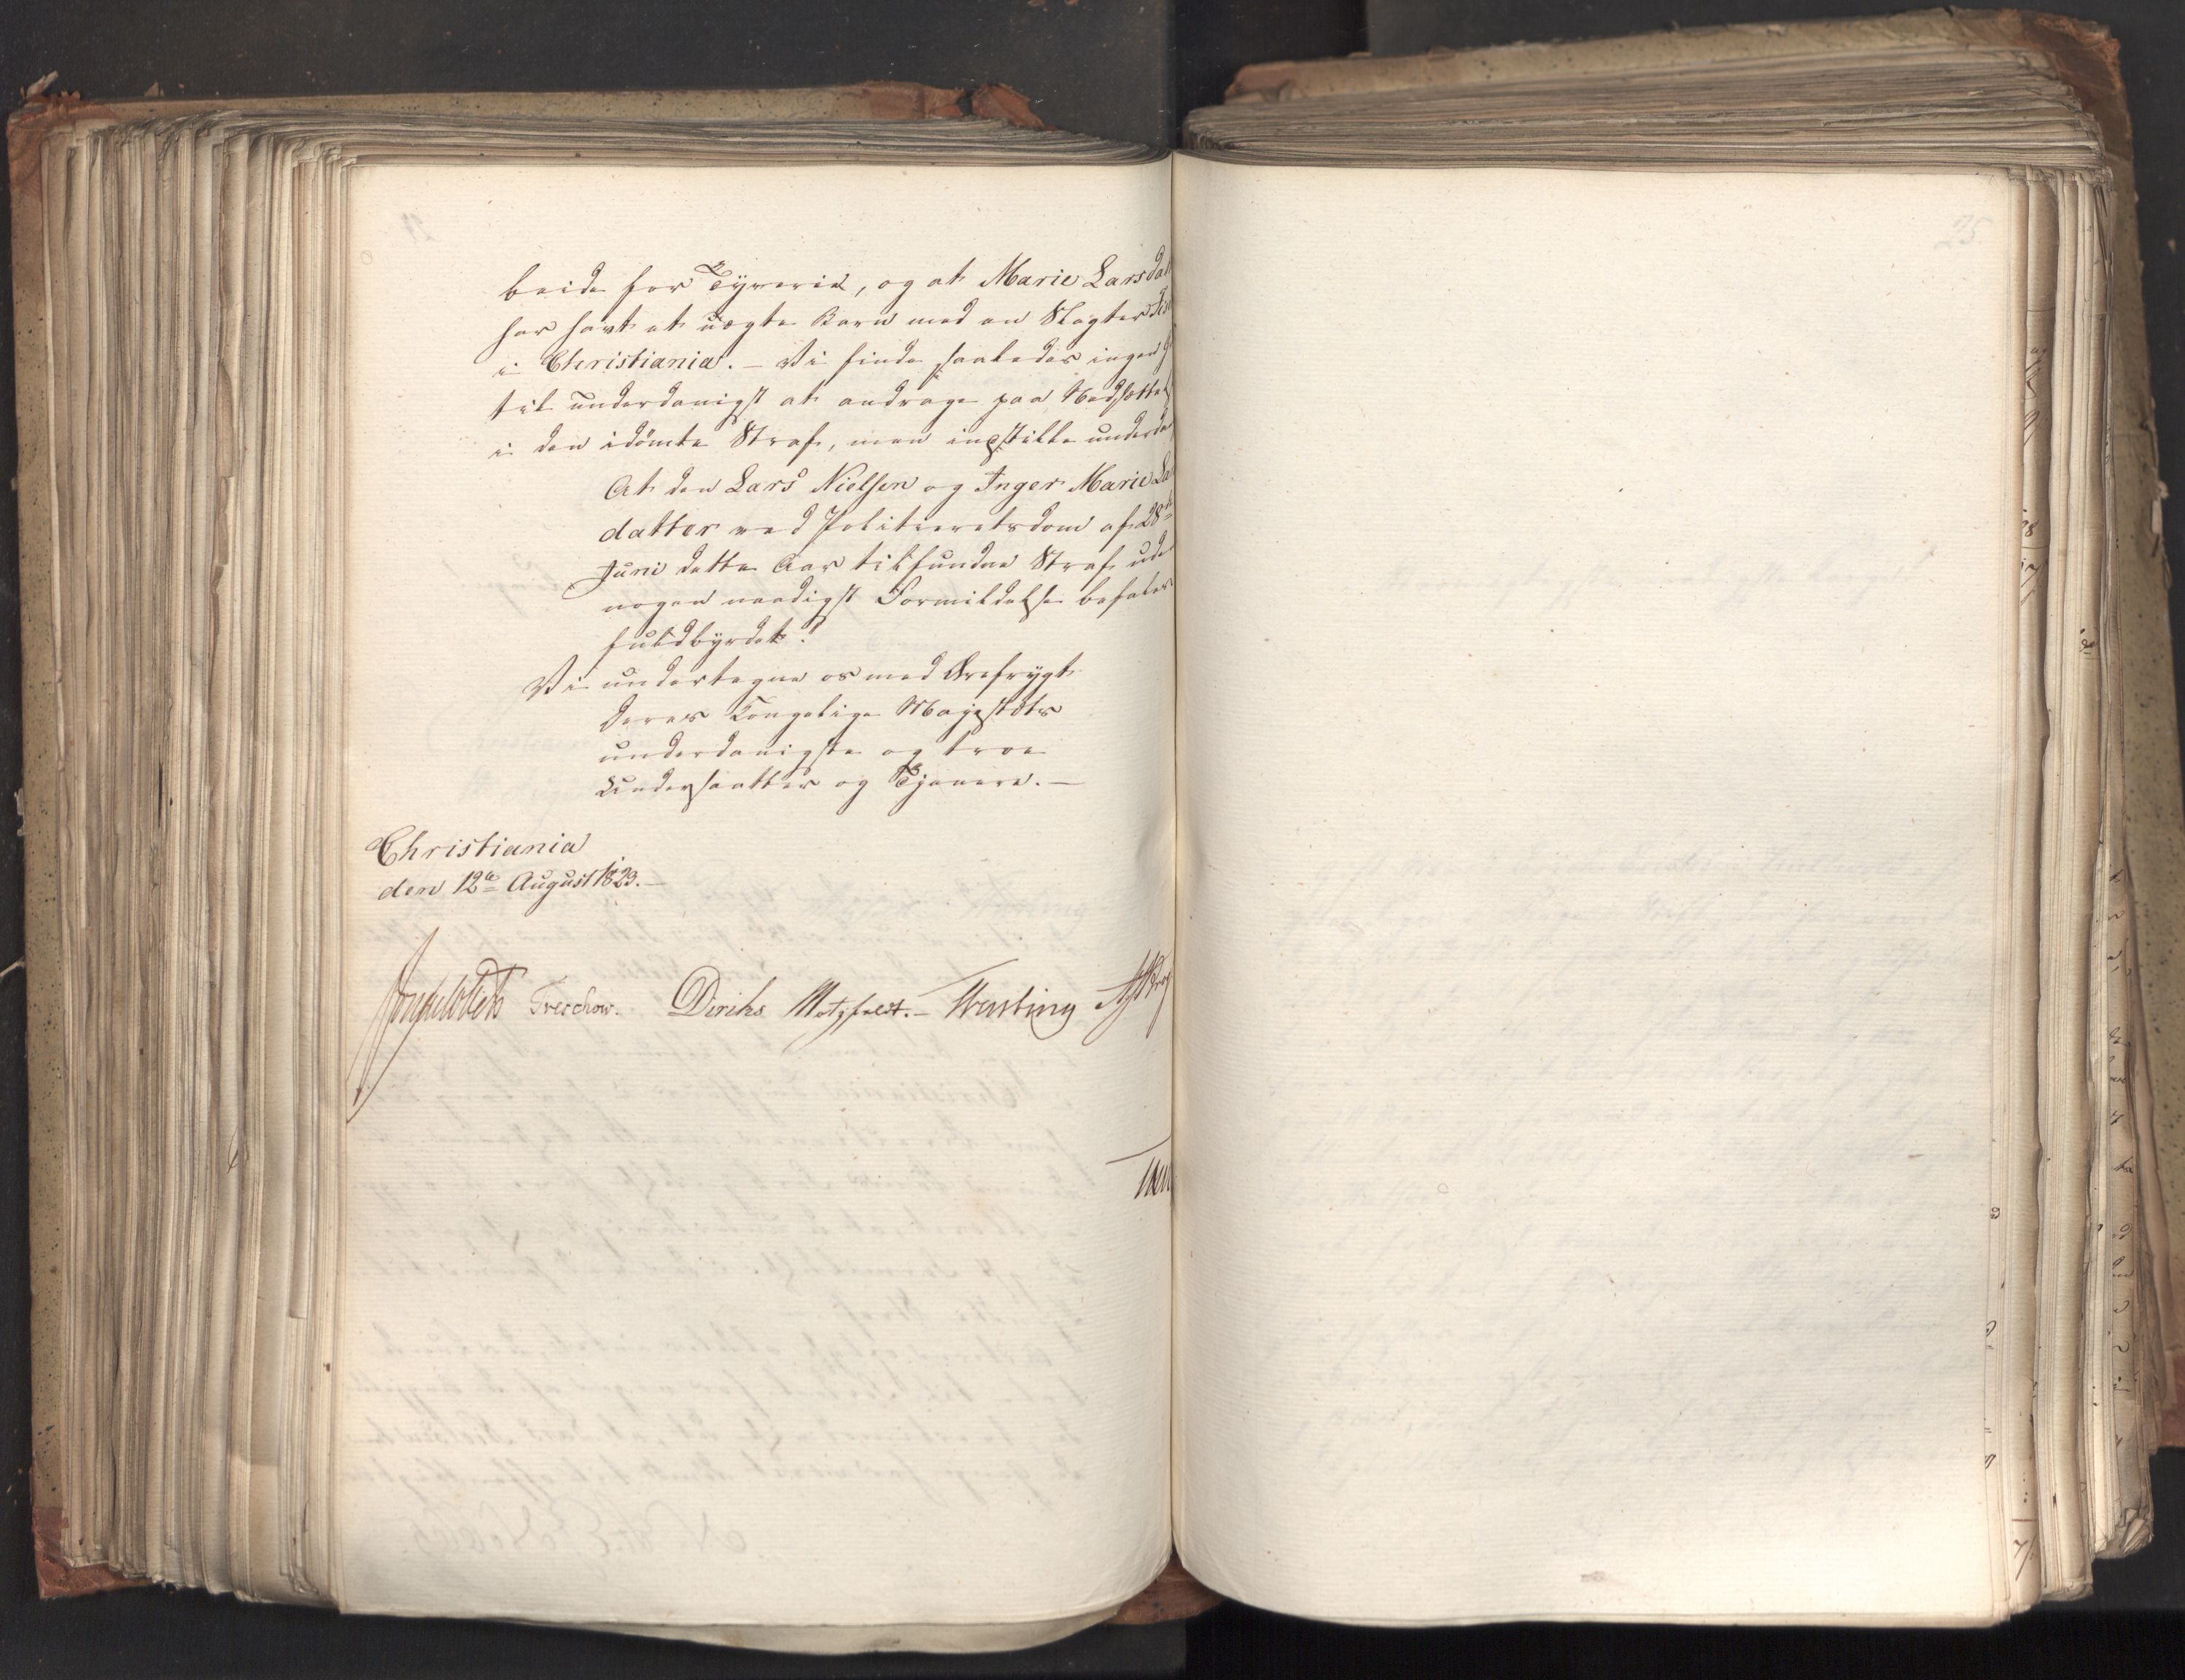 25
beide for Tyverie, og at Marie Larsdat
har havt et uægte Barn med en Slagter
i Christiania. – Vi finde saaledes ingen
til underdanigst at andrage paa Nedsættel
i den idömte Straf, men indstille underda
At den Lars Nielsen og Inger Marie La
datter ved Politieretsdom af 28de
Juni dette Aar tilfundne Straf ude
nogen naadigst Formildelse befales
fuldbyrdet!
Vi undertegne os med Ærefrygt
Deres Kongelige Majestæts
underdanigste og troe
Undersaatter og Tjenere. –
Christiania
den 12te August 1823. –
Treschow. Diriks Motzfeldt. –